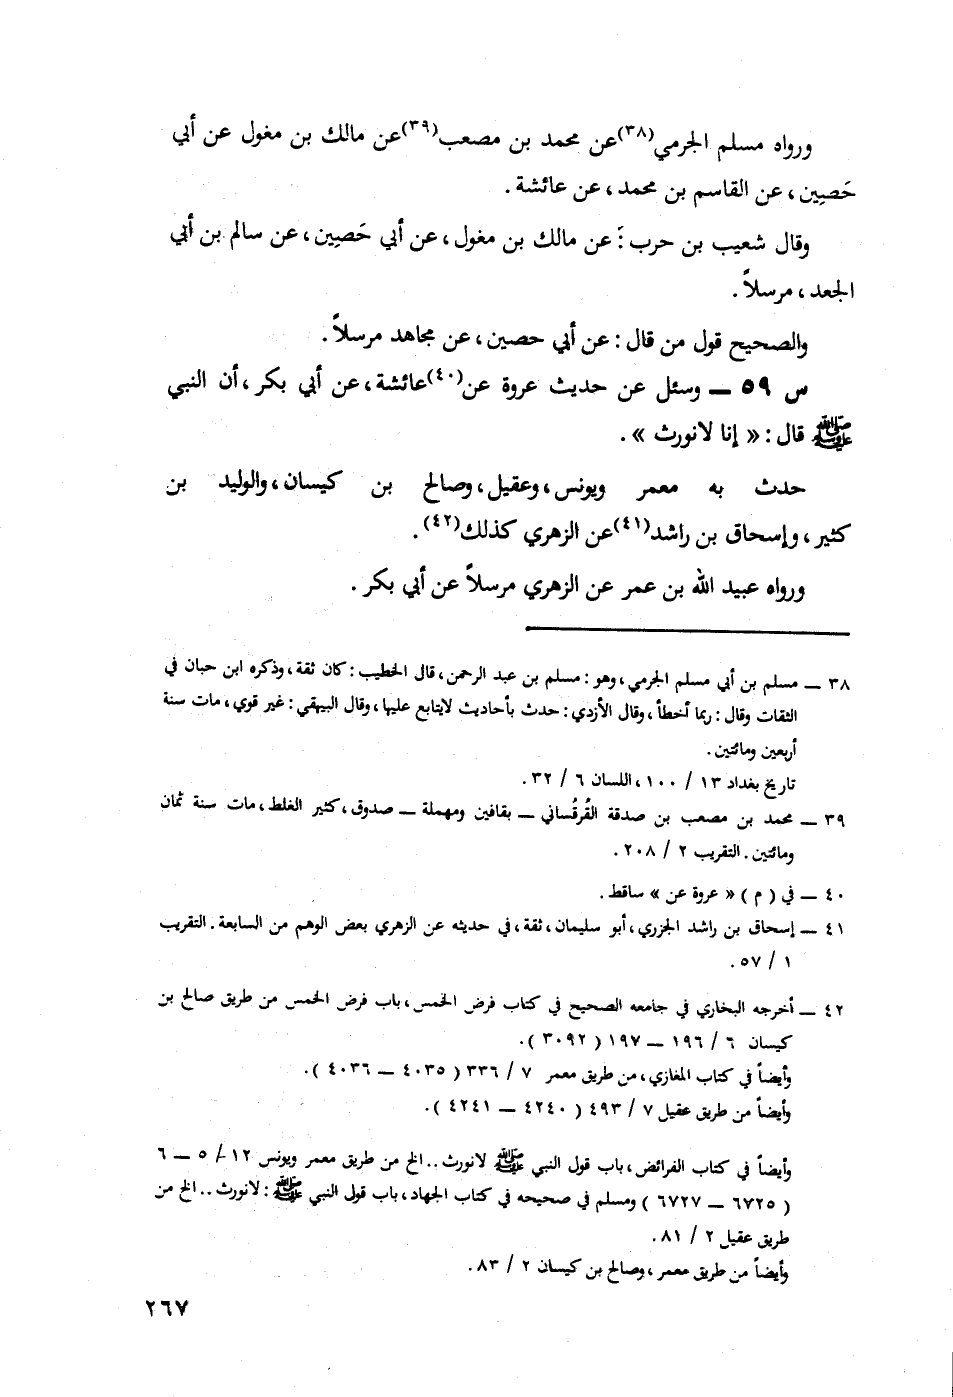 ورواه مسلم الجرمي(٣٨)عن محمد بن مصعب(٣٩)عن مالك بن مغول عن أبي
حَصِين، عن القاسم بن محمد، عن عائشة.
وقال شعيب بن حرب: عن مالك بن مغول، عن أبي حَصِين، عن سالم بن أبي
الجعد، مرسلاً.
والصحيح قول من قال: عن أبي حصين، عن مجاهد مرسلاً.
س ٥٩ ــ وسئل عن حديث عروة عن(٤٠)عائشة، عن أبي بكر، أن النبي
ﷺ قال: « إنا لانورث ».
حدث به معمر ويونس، وعقيل، وصالح بن كيسان، والوليد بن
كثير، وإسحاق بن راشد(٤١)عن الزهري كذلك(٤٢).
ورواه عبيد الله بن عمر عن الزهري مرسلاً عن أبي بكر.
٣٨ ــ مسلم بن أبي مسلم الجرمي، وهو: مسلم بن عبد الرحمن، قال الخطيب: كان ثقة، وذكره ابن حبان في
الثقات وقال: ربما أخطأ، وقال الأزدي: حدث بأحاديث لايتابع عليها، وقال البيهقي: غير قوي، مات سنة
أربعين ومائتين.
تاريخ بغداد ١٣ / ١٠٠، اللسان ٦ / ٣٢.
٣٩ ــ محمد بن مصعب بن صدقة القُرقُساني ــ بقافين ومهملة ــ صدوق، كثير الغلط، مات سنة ثمان
ومائتين. التقريب ٢ / ٢٠٨.
٤٠ ــ في ( م ) « عروة عن » ساقط.
٤١ ــ إسحاق بن راشد الجزري، أبو سليمان، ثقة، في حديثه عن الزهري بعض الوهم من السابعة. التقريب
١ / ٥٧.
٤٢ ــ أخرجه البخاري في جامعه الصحيح في كتاب فرض الخمس، باب فرض الخمس من طريق صالح بن
كيسان ٦ / ١٩٦ ــ ١٩٧ ( ٣٠٩٢ ).
وأيضاً في كتاب المغازي، من طريق معمر ٧ / ٣٣٦ ( ٤٠٣٥ ــ ٤٠٣٦ ).
وأيضاً من طريق عقيل ٧ / ٤٩٣ ( ٤٢٤٠ ــ ٤٢٤١ ).
وأيضاً في كتاب الفرائض، باب قول النبي ﷺ لانورث.. الخ من طريق معمر ويونس ١٢ / ٥ ــ ٦
( ٦٧٢٥ ــ ٦٧٢٧ ) ومسلم في صحيحه في كتاب الجهاد، باب قول النبي ﷺ: لانورث.. الخ من
طريق عقيل ٢ / ٨١.
وأيضاً من طريق معمر، وصالح بن كيسان ٢ / ٨٣.
٢٦٧